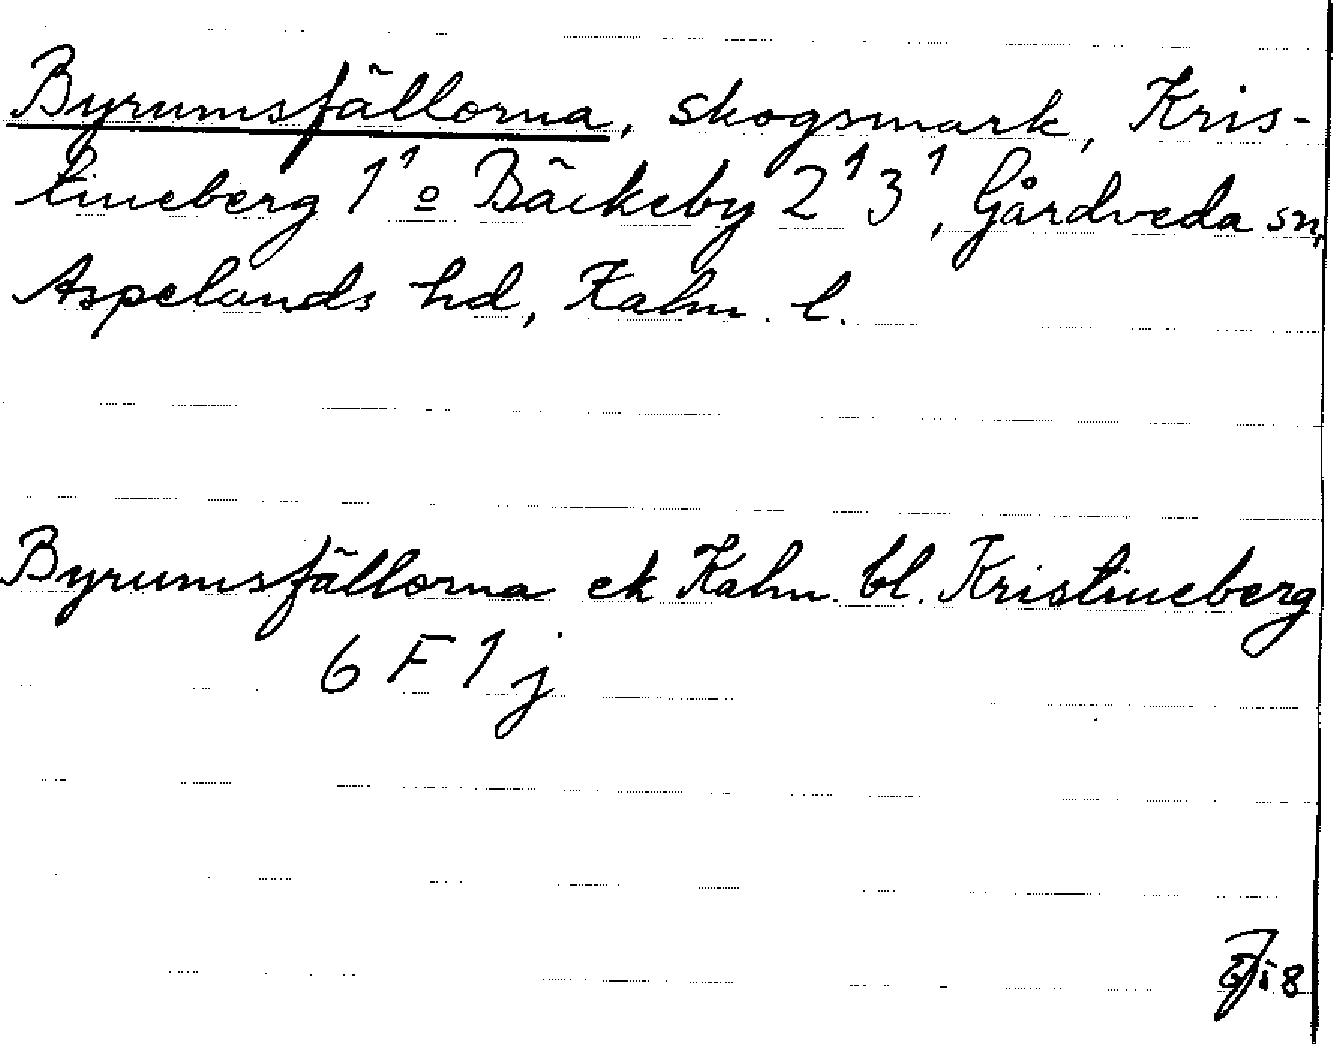 Byrumsfällorna, skogsmark, Kris-
tineberg 1¹ o Bäckeby 2¹ 3¹, Gårdveda sn,
Aspelands hd, Kalm. l.
Byrumsfällorna ek Kalm. bl. Kristineberg
6 F 1 j